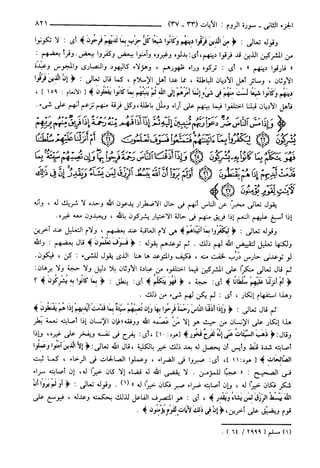 الجزء الثاني ـ سورة الروم : الآيات (٣٣ ـ ٣٧) ٨٢١
وقوله تعالى : ﴿ مِنَ الَّذِينَ فَرَّقُوا دِينَهُمْ وَكَانُوا شِيَعًا كُلُّ حِزْبٍ بِمَا لَدَيْهِمْ فَرِحُونَ ﴾ أى : لا تكونوا
من المشركين الذين قد فرقوا دينهم ، أى : بدلوه وغيروه وآمنوا ببعض وكفروا ببعض. وقرأ بعضهم :
« فارقوا دينهم » ، أى : تركوه وراء ظهورهم ، وهؤلاء كاليهود والنصارى والمجوس وعبدة
الأوثان ، وسائر أهل الأديان الباطلة ، مما عدا أهل الإسلام ، كما قال تعالى : ﴿ إِنَّ الَّذِينَ فَرَّقُوا
دِينَهُمْ وَكَانُوا شِيَعًا لَسْتَ مِنْهُمْ فِي شَيْءٍ إِنَّمَا أَمْرُهُمْ إِلَى اللَّهِ ثُمَّ يُنَبِّئُهُم بِمَا كَانُوا يَفْعَلُونَ ﴾ [ الأنعام : ١٥٩ ] ،
فأهل الأديان قبلنا اختلفوا فيما بينهم على آراء وملل باطلة ، وكل فرقة منهم تزعم أنهم على شىء.
وَإِذَا مَسَّ النَّاسَ ضُرٌّ دَعَوْا رَبَّهُم مُّنِيبِينَ إِلَيْهِ ثُمَّ إِذَا أَذَاقَهُم مِّنْهُ رَحْمَةً إِذَا فَرِيقٌ مِّنْهُم بِرَبِّهِمْ
يُشْرِكُونَ ﴿٣٣﴾ لِيَكْفُرُوا بِمَا آتَيْنَاهُمْ فَتَمَتَّعُوا فَسَوْفَ تَعْلَمُونَ ﴿٣٤﴾ أَمْ أَنزَلْنَا عَلَيْهِمْ سُلْطَانًا
فَهُوَ يَتَكَلَّمُ بِمَا كَانُوا بِهِ يُشْرِكُونَ ﴿٣٥﴾ وَإِذَا أَذَقْنَا النَّاسَ رَحْمَةً فَرِحُوا بِهَا وَإِن تُصِبْهُمْ سَيِّئَةٌ بِمَا
قَدَّمَتْ أَيْدِيهِمْ إِذَا هُمْ يَقْنَطُونَ ﴿٣٦﴾ أَوَلَمْ يَرَوْا أَنَّ اللَّهَ يَبْسُطُ الرِّزْقَ لِمَن يَشَاءُ وَيَقْدِرُ إِنَّ فِي ذَلِكَ لَآيَاتٍ
لِّقَوْمٍ يُؤْمِنُونَ ﴿٣٧﴾
يقول تعالى مخبراً عن الناس أنهم فى حال الاضطرار يدعون الله وحده لا شريك له ، وأنه
إذا أسبغ عليهم النعم إذا فريق منهم فى حالة الاختيار يشركون بالله ، ويعبدون معه غيره.
وقوله تعالى : ﴿ لِيَكْفُرُوا بِمَا آتَيْنَاهُمْ ﴾ هى لام العاقبة عند بعضهم ، ولام التعليل عند آخرين
ولكنها تعليل لتقييض الله لهم ذلك . ثم توعدهم بقوله : ﴿ فَسَوْفَ تَعْلَمُونَ ﴾ قال بعضهم : والله
لو توعدنى حارس درب لخفت منه ، فكيف والمتوعد ها هنا الذى يقول للشىء : كن ، فيكون.
ثم قال تعالى منكراً على المشركين فيما اختلقوه من عبادة الأوثان بلا دليل ولا حجة ولا برهان :
﴿ أَمْ أَنزَلْنَا عَلَيْهِمْ سُلْطَانًا ﴾ أى : حجة ، ﴿ فَهُوَ يَتَكَلَّمُ ﴾ أى : ينطق : ﴿ بِمَا كَانُوا بِهِ يُشْرِكُونَ ﴾ ؟
وهذا استفهام إنكار ، أى : لم يكن لهم شىء من ذلك .
ثم قال تعالى : ﴿ وَإِذَا أَذَقْنَا النَّاسَ رَحْمَةً فَرِحُوا بِهَا وَإِن تُصِبْهُمْ سَيِّئَةٌ بِمَا قَدَّمَتْ أَيْدِيهِمْ إِذَا هُمْ يَقْنَطُونَ ﴾
هذا إنكار على الإنسان من حيث هو إلا من عَصَمَه الله ووفقه ، فإن الإنسان إذا أصابته نعمة بَطَر
وقال : ﴿ ذَهَبَ السَّيِّئَاتُ عَنِّي إِنَّهُ لَفَرِحٌ فَخُورٌ ﴾ [هود : ١٠] ، أى : يفرح فى نفسه ويفخر على غيره ، وإذا
أصابته شدة قنط وأيس أن يحصل له بعد ذلك خير بالكلية ، قال الله تعالى : ﴿ إِلَّا الَّذِينَ آمَنُوا وَعَمِلُوا
الصَّالِحَاتِ ﴾ [ هود : ١١] ، أى : صبروا فى الضراء ، وعملوا الصالحات فى الرخاء ، كما ثبت
فى الصحيح : « عجباً للمؤمن ، لا يقضى الله له قضاء إلا كان خيراً له ، إن أصابته سراء
شكر فكان خيراً له ، وإن أصابته ضراء صبر فكان خيراً له » (١) . وقوله تعالى : ﴿ أَوَ لَمْ يَرَوْا أَنَّ
اللَّهَ يَبْسُطُ الرِّزْقَ لِمَن يَشَاءُ وَيَقْدِرُ ﴾ ، أى : هو المتصرف الفاعل لذلك بحكمته وعدله ، فيوسع على
قوم ويضيق على آخرين ، ﴿ إِنَّ فِي ذَلِكَ لَآيَاتٍ لِّقَوْمٍ يُؤْمِنُونَ ﴾ .
(١) مسلم ( ٢٩٩٩ / ٦٤ ) .